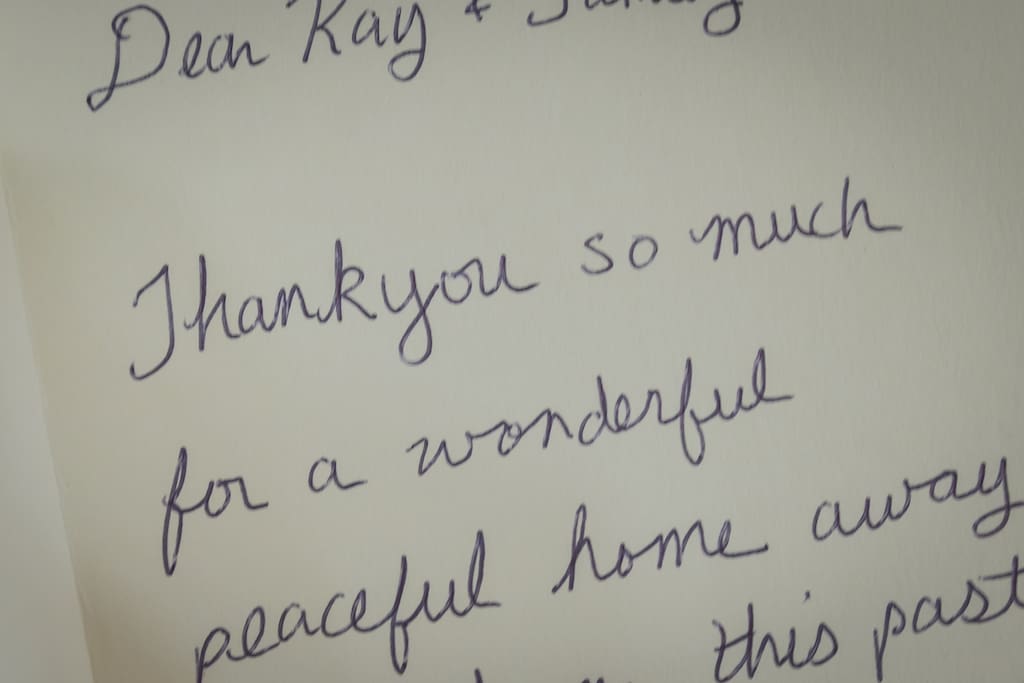 Dear Kay +
Thankyou so much
for a wonderful
peaceful home away
this past